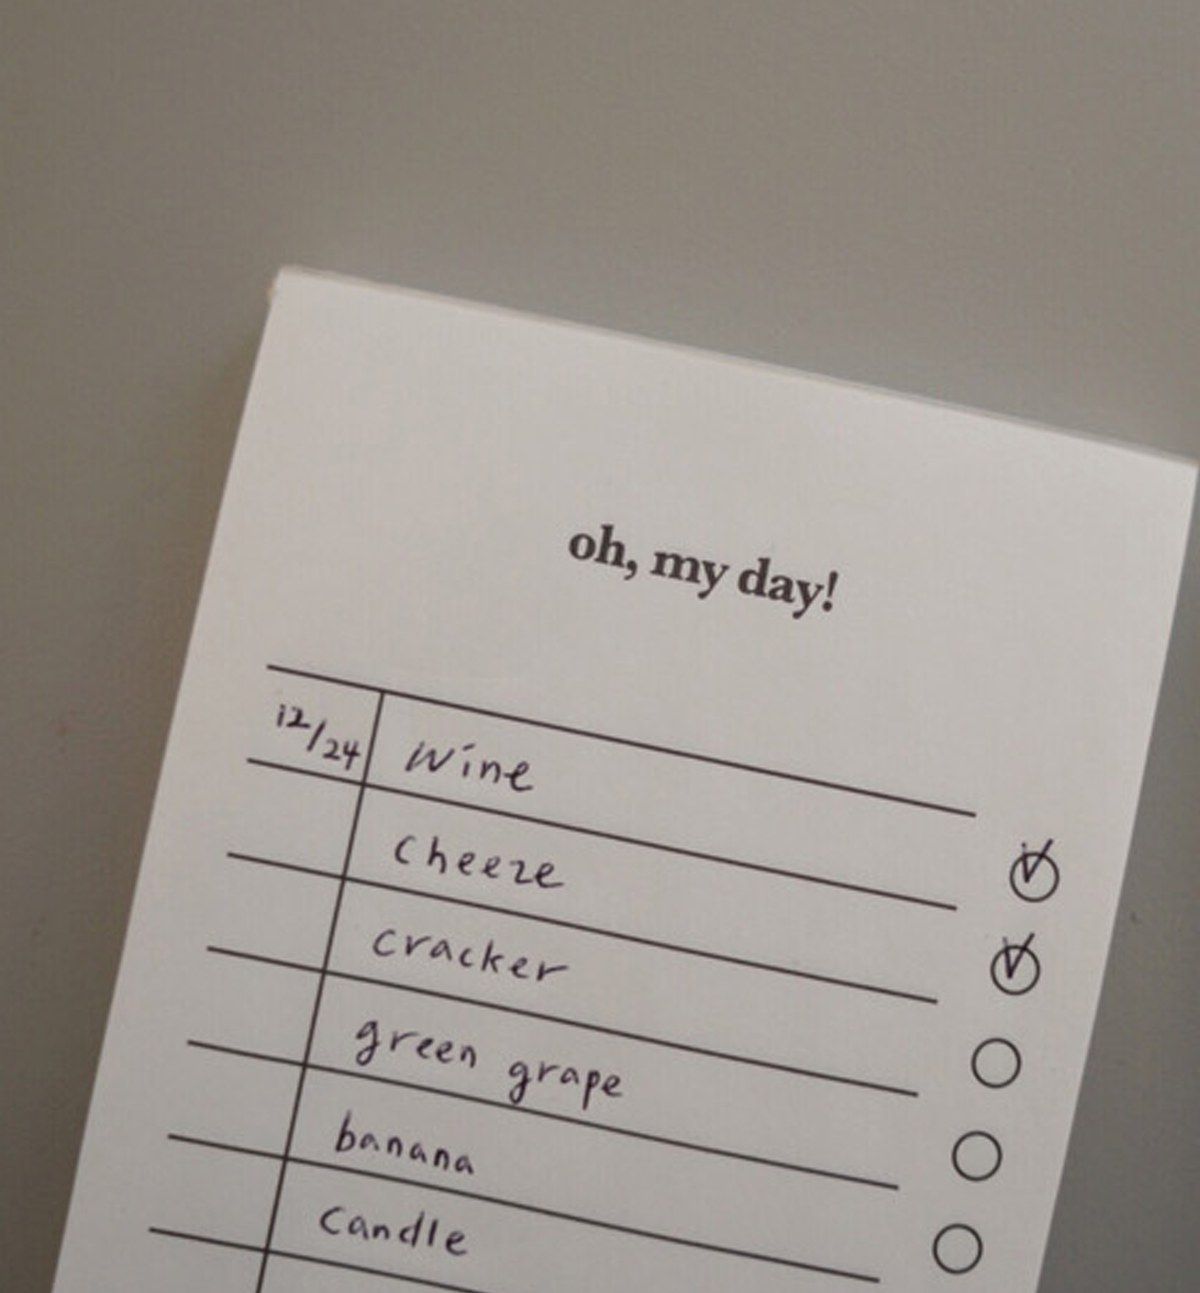 oh, my day!
12/24 Wine
Cheeze
cracker
green grape
banana
Candle